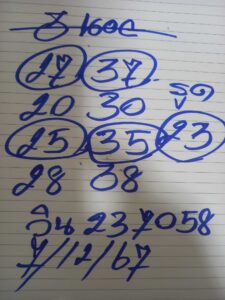 27 37
20 30
รูด
25 35 23
28 38
วิน 237058
7/12/67